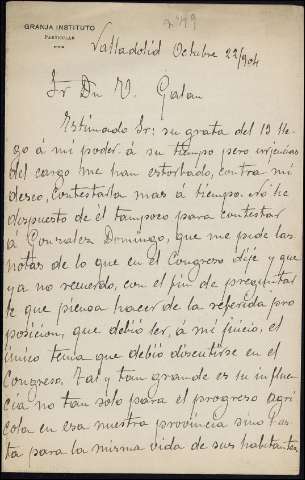 GRANJA INSTITUTO
PARTICULAR
Valladolid Octubre 22/904
Sr Dn V. Galan
Estimado Sr: su grata del 13 lle
gó á mi poder á su tiempo pero urgencias
del cargo me han estorbado, contra mi
deseo, contestarla mas á tiempo. No he
dispuesto de él tampoco para contestar
á Gonzalez Domingo, que me pide las
notas de lo que en el Congreso dije y que
ya no recuerdo, con el fin de preguntar
le que piensa hacer de la referida pro
posicion, que debió ser, á mi juicio, el
único tema que debió discutirse en el
Congreso. Tal y tan grande es su influen
cia no tan sólo para el progreso agrí
cola en esa nuestra provincia sino has
ta para la misma vida de sus habitantes